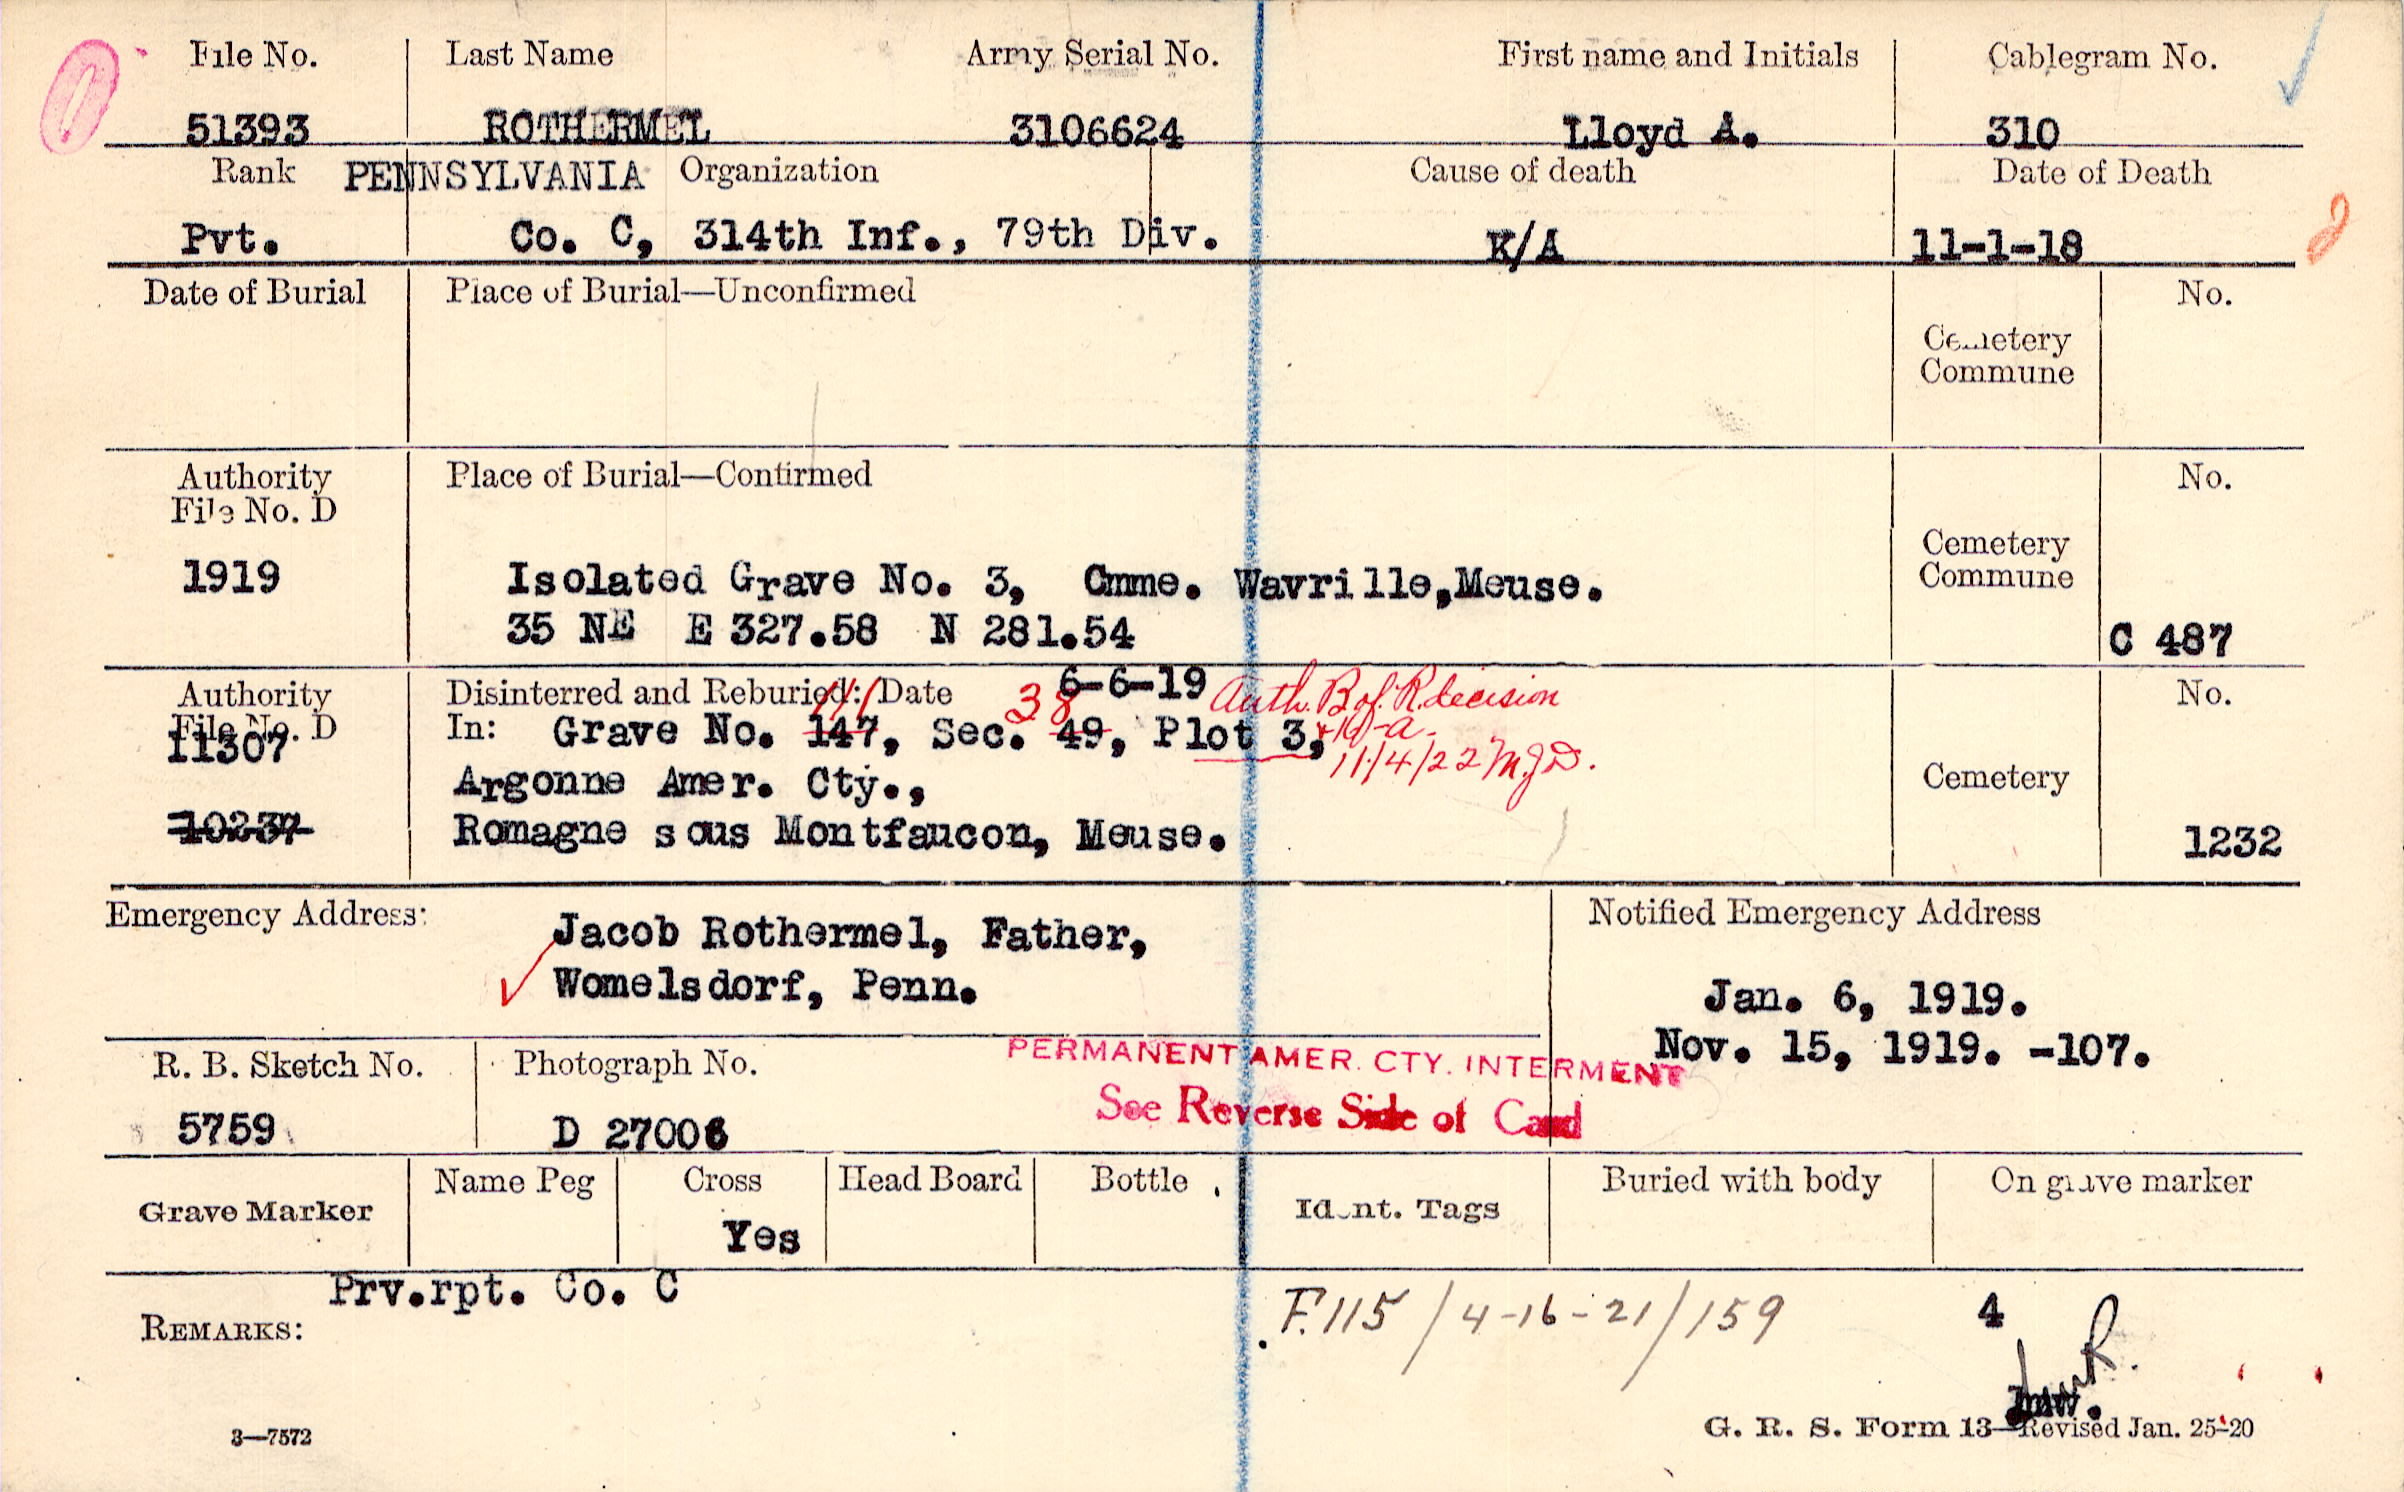 File No. Last Name Army Serial No. First name and Initials Cablegram No.
51393 ROTHERMEL 3106624 Lloyd A. 310
Rank PENNSYLVANIA Organization Cause of death Date of Death
Pvt. Co. C, 314th Inf., 79th Div. K/A 11-1-18
Date of Burial Place of Burial—Unconfirmed No.
Cemetery
Commune
Authority Place of Burial—Confirmed No.
File No. D
Cemetery
1919 Isolated Grave No. 3, Cmme. Wavrille,Meuse. Commune
35 NE E 327.58 N 281.54 C 487
Authority Disinterred and Reburied: Date 6-6-19 Auth. B of. R. decision No.
File No. D 111 38
11307 In: Grave No. 147, Sec. 49, Plot 3,
11/4/22 M.J.D.
Argonne Amer. Cty., Cemetery
10237 Romagne sous Montfaucon, Meuse. 1232
Emergency Address: Jacob Rothermel, Father, Notified Emergency Address
Womelsdorf, Penn. Jan. 6, 1919.
Nov. 15, 1919. -107.
R. B. Sketch No. Photograph No. PERMANENT AMER. CTY. INTERMENT
5759 D 27006 See Reverse Side of Card
Grave Marker Name Peg Cross Head Board Bottle Ident. Tags Buried with body On grave marker
Yes
Prv.rpt. Co. C
REMARKS: F.115 / 4-16-21 / 159 4
3—7572 G. R. S. Form 13—Revised Jan. 25-20